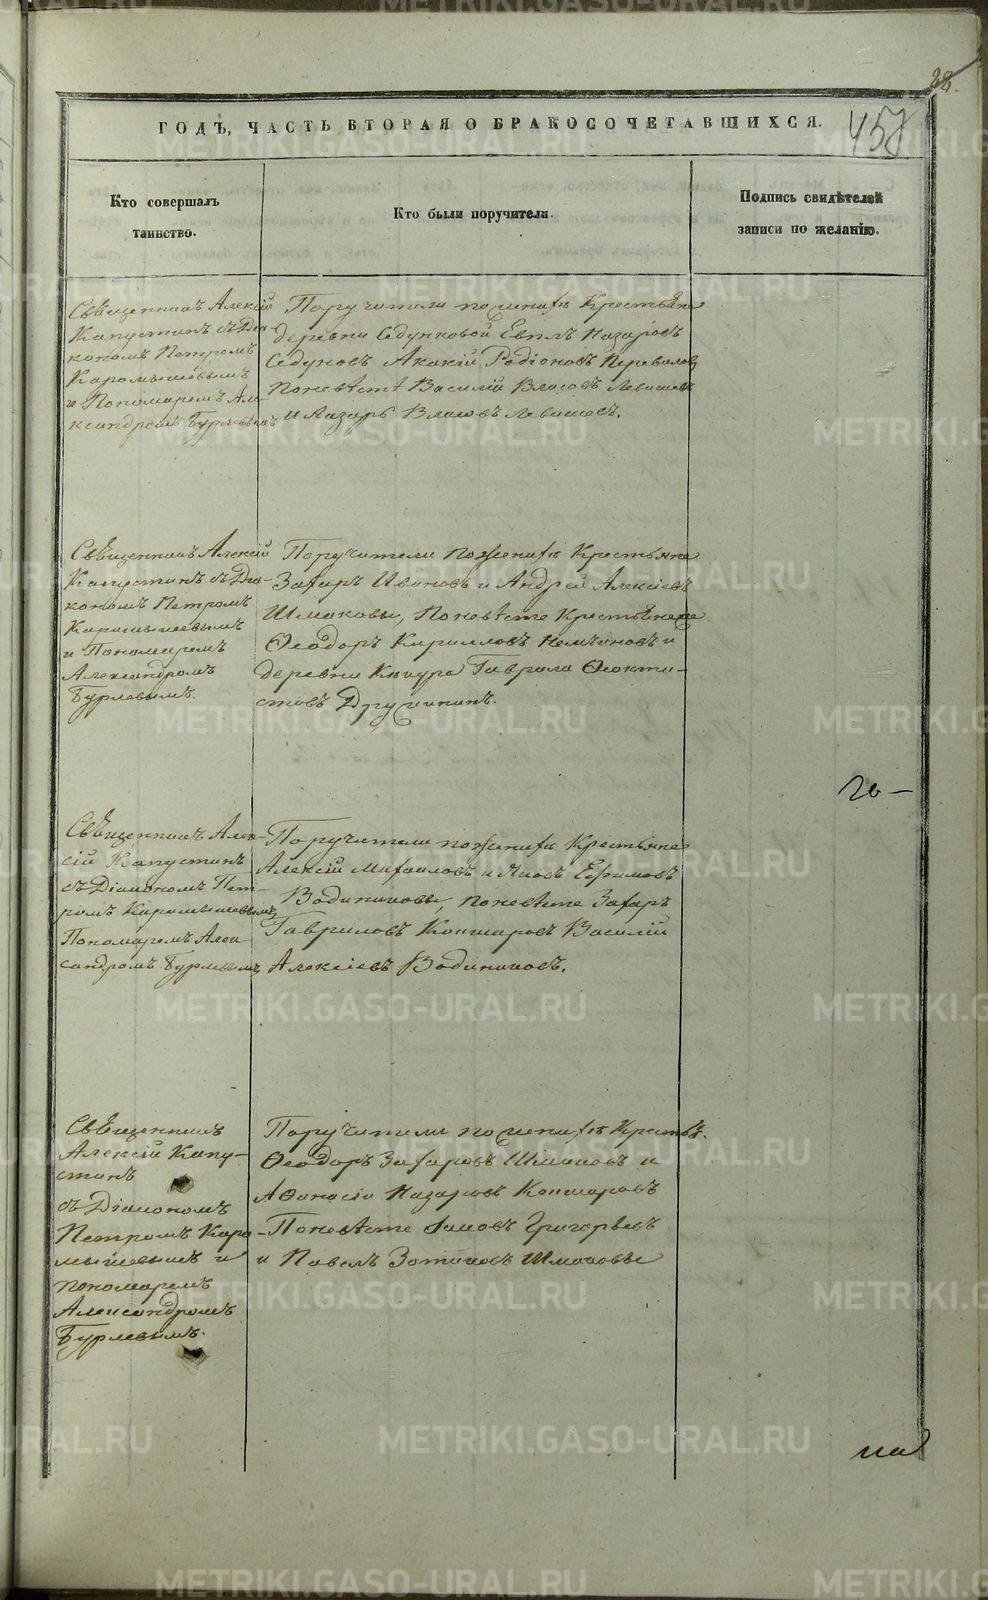 ГОДЪ, ЧАСТЬ ВТОРАЯ О БРАКОСОЧЕТАВШИХСЯ.
457
Кто совершалъ
таинство.
Кто были поручители.
Подпись свидѣтелей
записи по желанію.
Священникъ Алексій
Капустинъ съ Діа-
кономъ Петромъ
Карамышевымъ
и Пономаремъ Але-
ксандромъ Бурлевымъ
Поручители по женихѣ Крестьяне
деревни Седунковой Евплъ Назаровъ
Седуновъ Акакій Родіоновъ Перевалов
по невѣстѣ Василій Власовъ Левашевъ
и Лазарь Власовъ Левашевъ.
Священникъ Алексій
Капустинъ съ Діа-
кономъ Петромъ
Карамышевымъ
и Пономаремъ
Александромъ
Бурлевымъ.
Поручители по женихѣ Крестьяне
Захаръ Ивановъ и Андрей Алексѣевъ
Шмаковы, по невѣсте Крестьяне
Ѳеодоръ Кирилловъ Немчиновъ и
деревни Гаврила Ѳеокти-
стовъ Дружининъ.
Священникъ Алек-
сій Капустинъ
съ Діакономъ Пет-
ромъ Карамышевымъ
Пономаремъ Алек
сандромъ Бурлевымъ
Поручители по женихѣ Крестьяне
Алексій Михайловъ и Яковъ Ефимовъ
Водиниковы, по невѣсте Захаръ
Гавриловъ Кошкаровъ Василій
Алексіевъ Водиниковъ.
Священникъ
Алексій Капу-
стинъ
съ Діакономъ
Петромъ Кара
мышевымъ и
пономаремъ
Александромъ
Бурлевымъ.
Поручители по женихѣ Крестья.
Ѳеодоръ Захаровъ Шмаковъ и
Аѳанасій Назаровъ Кошкаровъ
По невѣсте Григорьевъ
и Павелъ Зотиковъ Шмаковы
METRIKI.GASO-URAL.RU